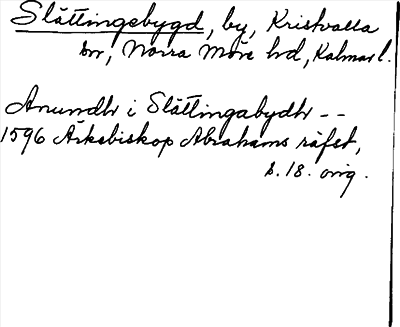 Slättingebygd, by, Kristvalla
sn, Norra Möre hd, Kalmar l.
Anundh i Slättingabydh --
1596 Ärkebiskop Abrahams räfst,
s. 18. orig.